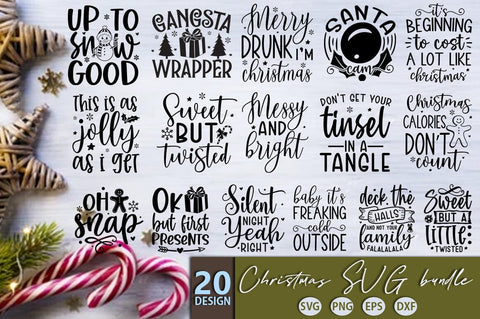 UP TO
SNOW
GOOD
GANGSTA
WRAPPER
Merry
DRUNK I'M
christmas
SANTA
cam
it's
BEGINNING
TO COST
A LOT LIKE
christmas
This is as
jolly
as i get
Sweet
BUT
twisted
Messy
AND
bright
DON'T GET YOUR
tinsel
IN A
TANGLE
Christmas
CALORIES
DON'T
count
OH
snap
OK
but first
PRESENTS
Silent
NIGHT
Yeah
RIGHT
baby it's
FREAKING
cold
OUTSIDE
deck the
HALLS
AND NOT YOUR
family
FALALALALA
Sweet
BUT A
little
TWISTED
20
DESIGN
Christmas SVG bundle
SVG PNG EPS DXF